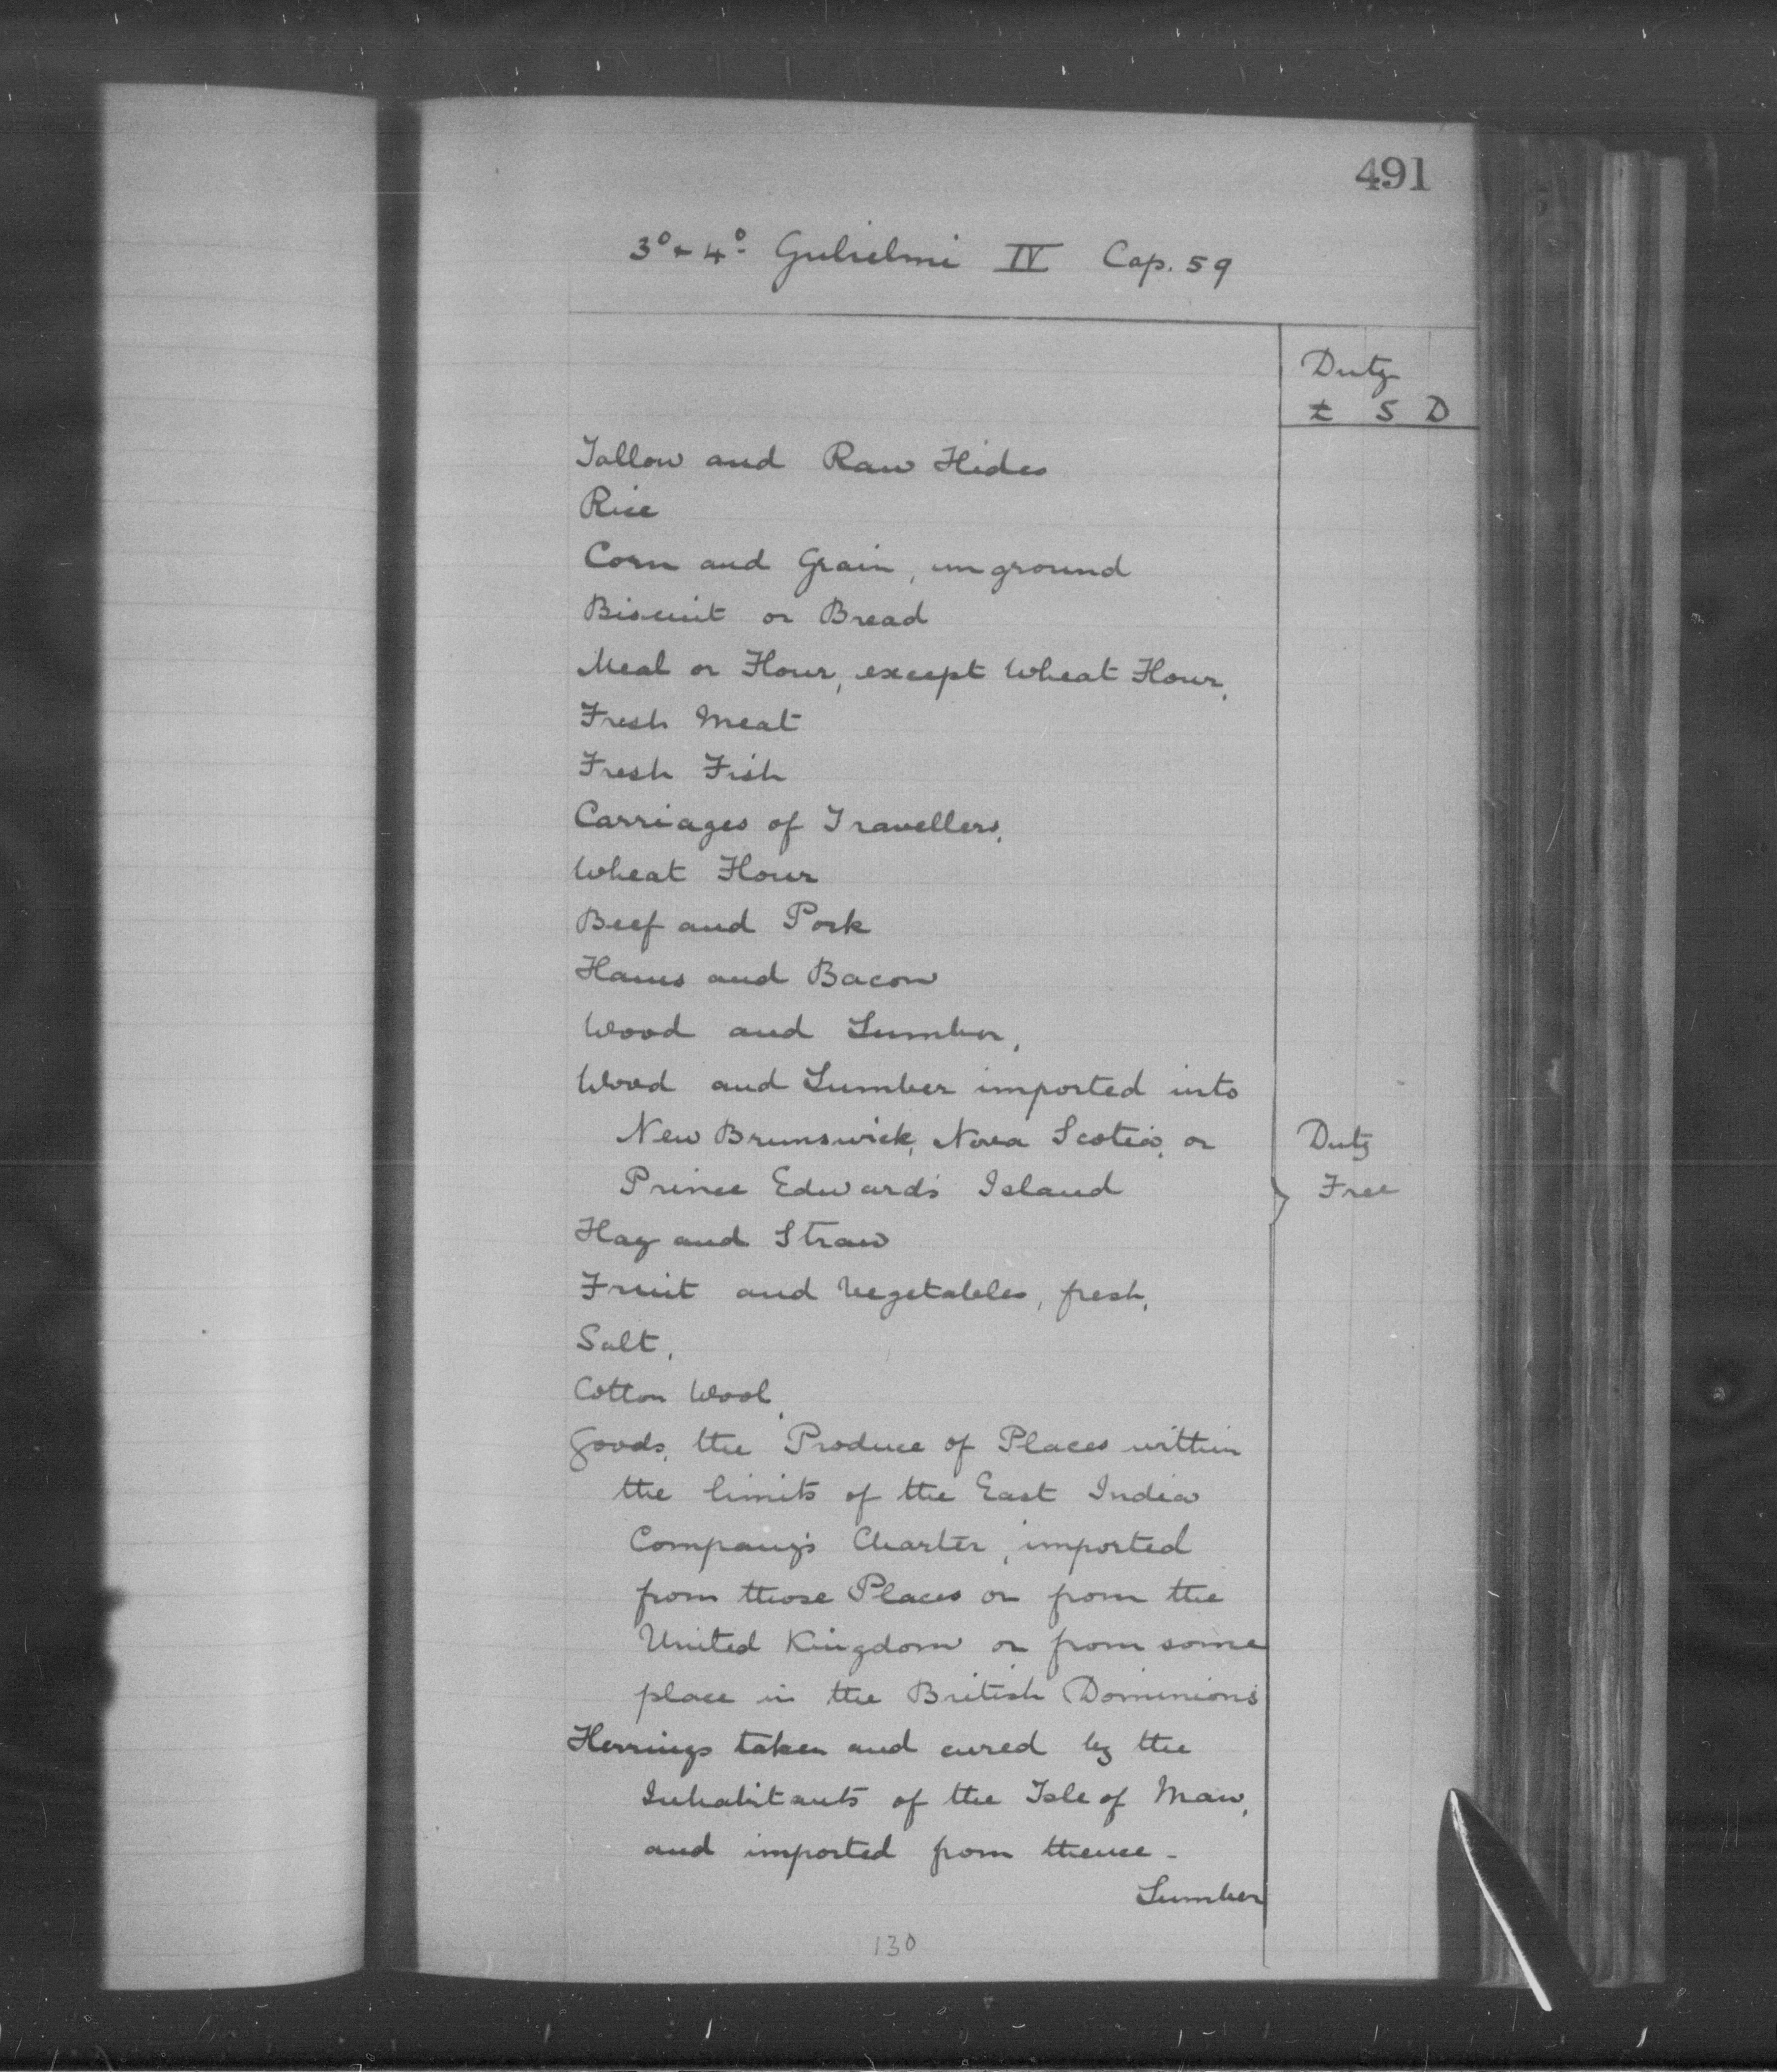 491
3º & 4º Gulielmi IV Cap. 59
Duty
£ S D
Tallow and Raw Hides
Rice
Corn and Grain, unground
Biscuit or Bread
Meal or Flour, except Wheat Flour,
Fresh Meat
Fresh Fish
Carriages of Travellers,
Wheat Flour
Beef and Pork
Hams and Bacon
Wood and Lumber,
Wood and Lumber imported into
New Brunswick, Nova Scotia, or Duty
Prince Edward's Island } Free
Hay and Straw
Fruit and Vegetables, fresh,
Salt,
Cotton Wool,
Goods, the Produce of Places within
the limits of the East India
Company's Charter, imported
from those Places or from the
United Kingdom or from some
place in the British Dominions
Herrings taken and cured by the
Inhabitants of the Isle of Man,
and imported from thence -
Lumber
130